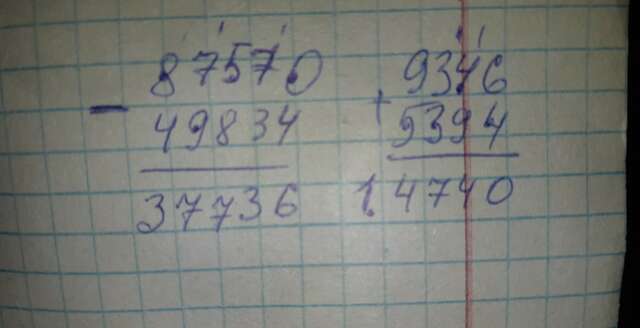 87570
−
49834
37736
9346
+
5394
14740